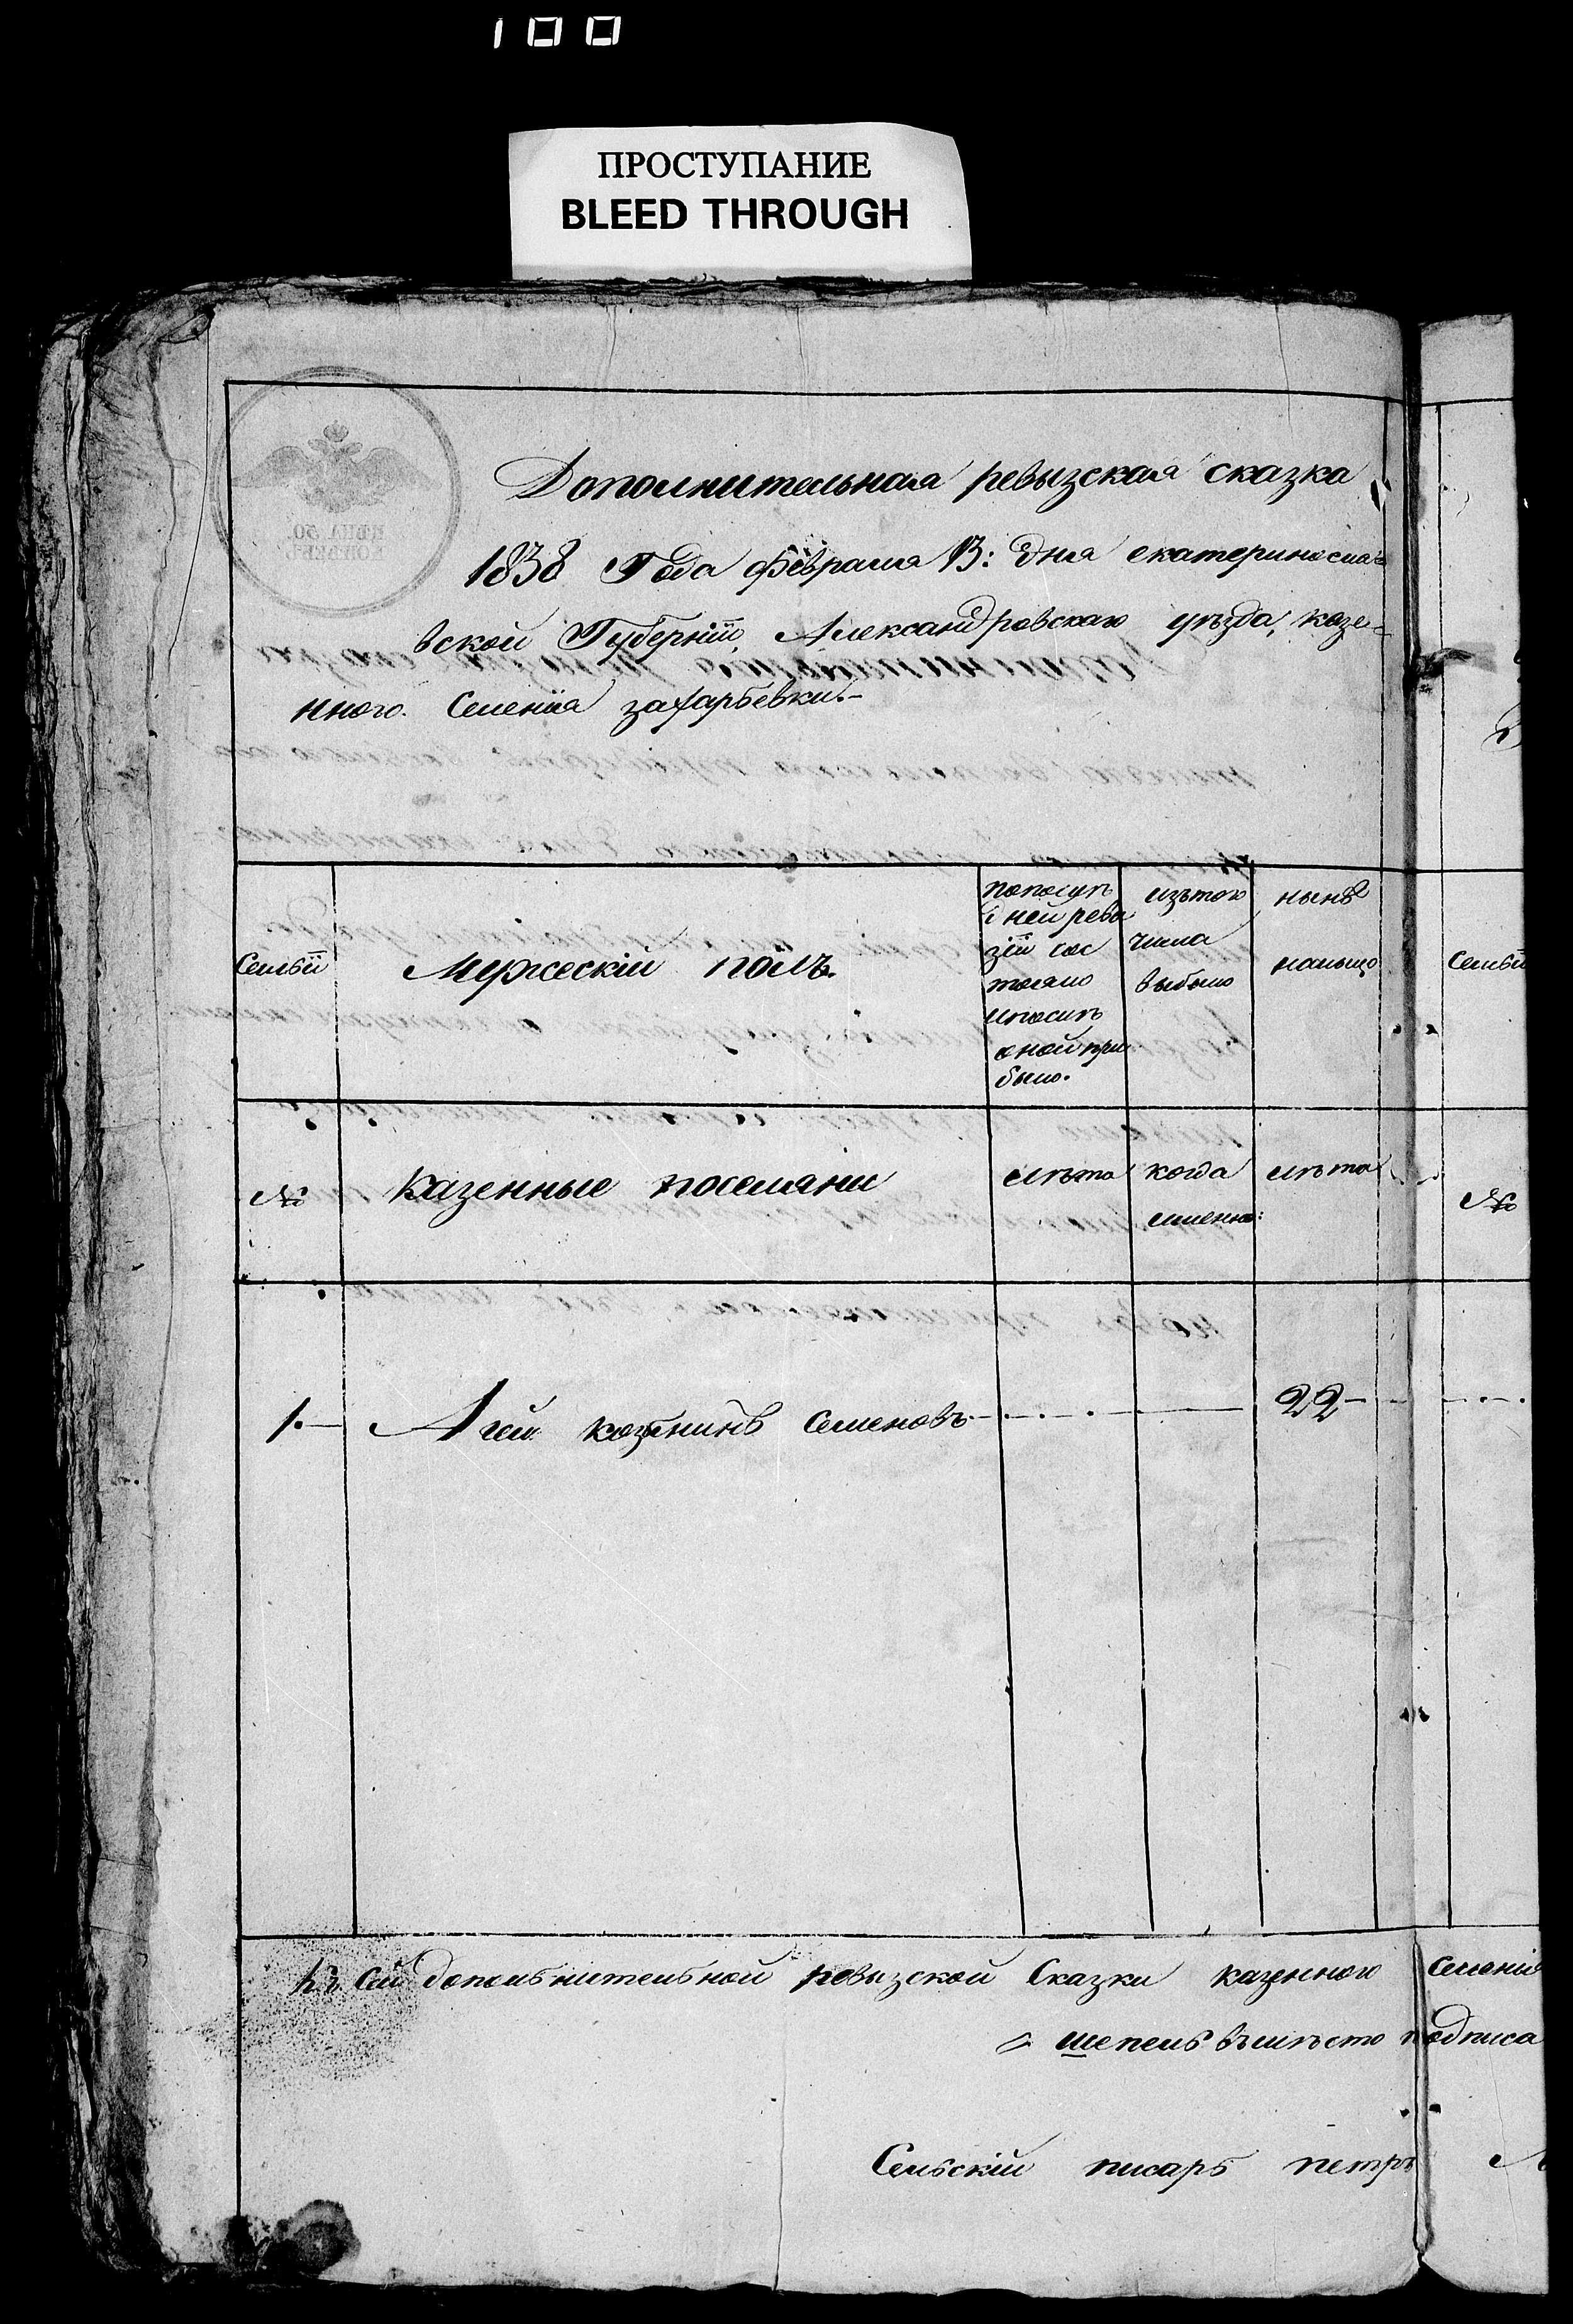 100
ПРОСТУПАНИЕ
BLEED THROUGH
Дополнительная ревызская сказка
1838 Года февраля 13: дня екатериносла=
вской Губерніи, Александровскаго уѣзда, казе=
нного Селенія захарьевки.-
Семьи
Мужескій полъ.
попослѣ
дней реви
зіи сос
тояло
ипослѣ
оной при
было.
изътого
числа
выбыло
нынѣ
налыцо
Семьи
№
казенные поселяни
лѣта
когда
имянно:
лѣта
№
1.—
Агей семеновъ
22-
Къ сей допольнительной ревызской Сказки казенного Селенія
шепель въмѣсто подписа
Сельскій писарь петръ